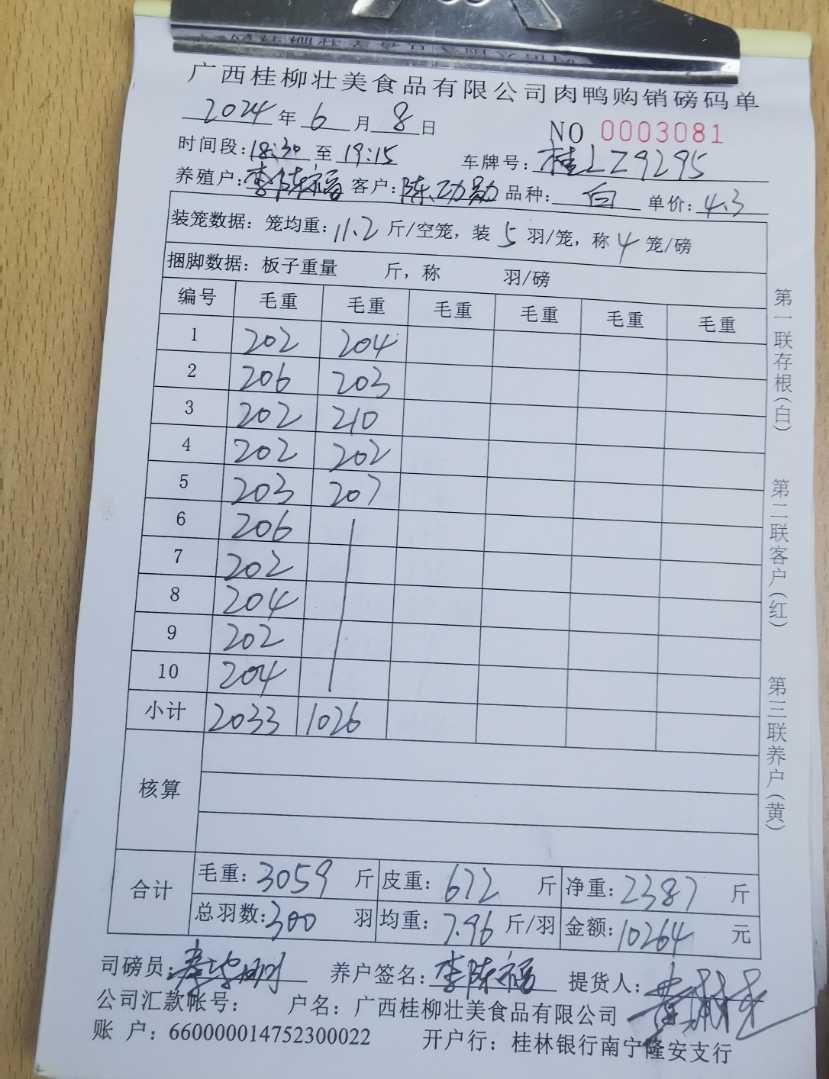 广西桂柳壮美食品有限公司肉鸭购销磅码单
2024年6月8日 NO 0003081
时间段:18:30至19:15 车牌号:桂LZ9295
养殖户:李陈福 客户:陈功勋 品种:白 单价:4.3
装笼数据:笼均重:11.2斤/空笼,装5羽/笼,称4笼/磅
捆脚数据:板子重量 斤,称 羽/磅
编号 毛重 毛重 毛重 毛重 毛重 毛重
1 202 204
2 206 203
3 202 210
4 202 202
5 203 207
6 206
7 202
8 204
9 202
10 204
小计 2033 1026
核算
合计 毛重:3059斤 皮重:672斤 净重:2387斤
总羽数:300羽 均重:7.96斤/羽 金额:10264元
司磅员: 养户签名:李陈福 提货人:
公司汇款帐号: 户名:广西桂柳壮美食品有限公司
账 户:660000014752300022 开户行:桂林银行南宁隆安支行
第一联存根(白)
第二联客户(红)
第三联养户(黄)